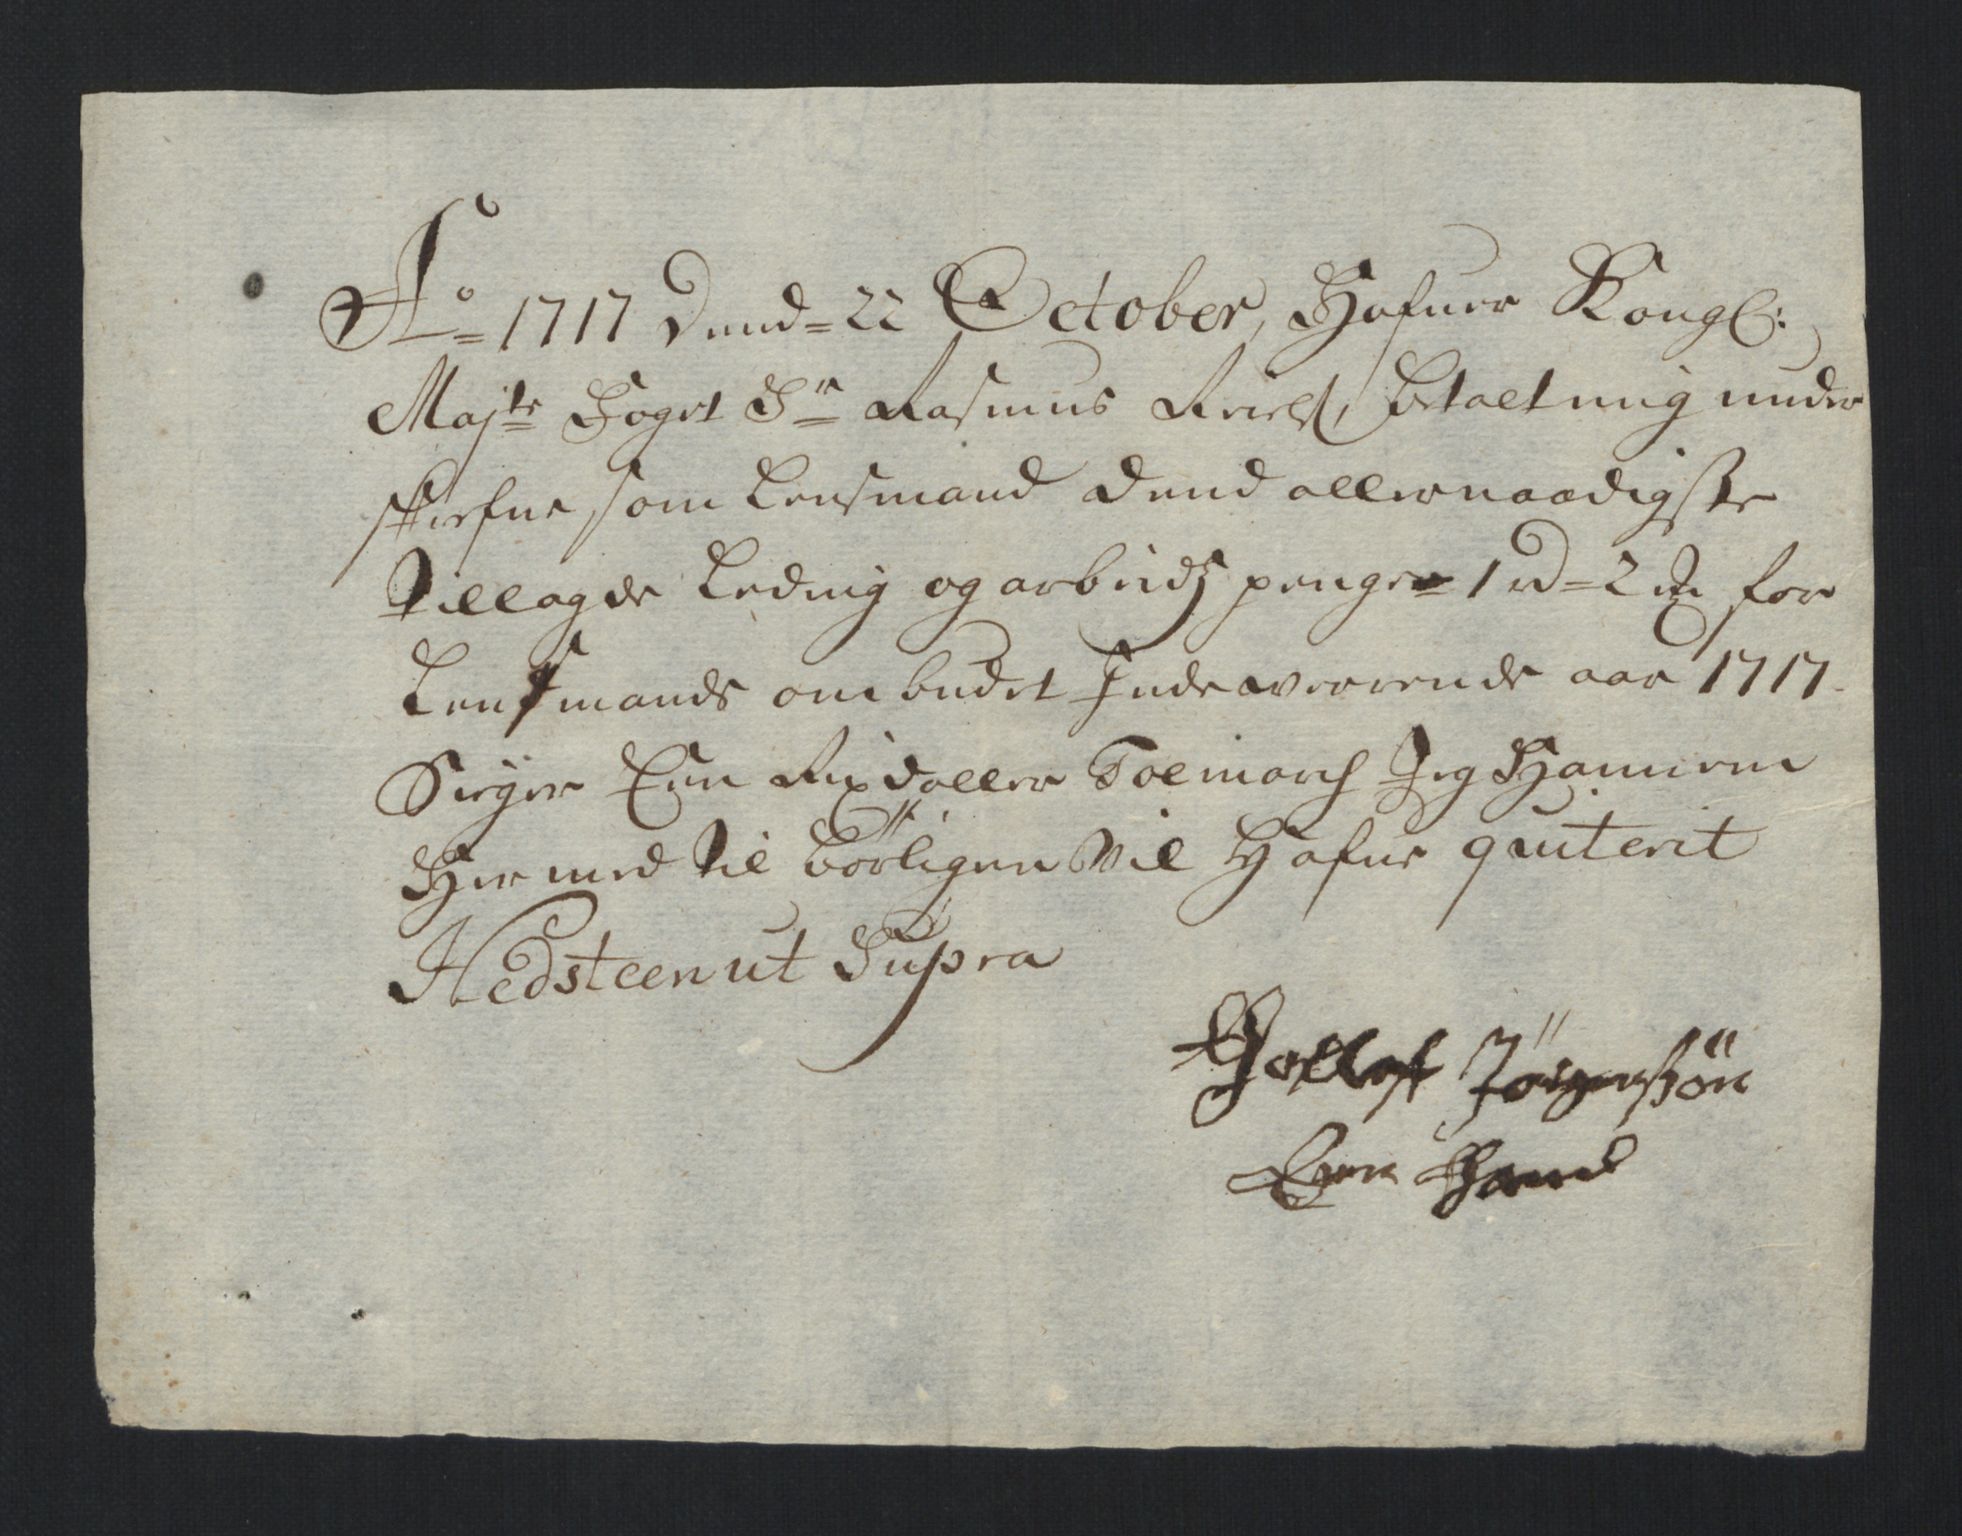 Ao 1717 Dend 22 October, Hafuer Kongl:
Majts Foget Sr Rasmus betalt mig under
skrefne som Lensmand dend allernaadigste
tillagde Leding og arbeidz penger 1 rd 2 mk for
Lensmands ombudet Indeværende aar 1717.
Siger Een Rixdaller Toe march Jeg Hannem
Her med til börligen vil Hafue quiterit
Hedsteen ut Supra
Jörgensön
Egen Haand